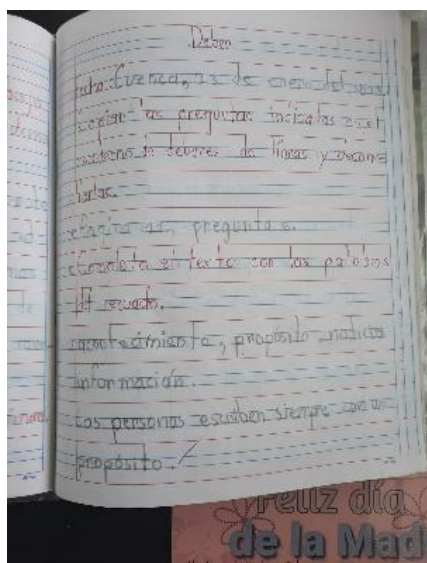 Deber
Fecho: Cuenca, 23 de enero del
copiar las preguntas indicadas en el
cuaderno de deberes de líneas y
pregunta 6.
Completa el texto con las palabras
del recuadro.
acontecimiento, propósito noticia
información.
Los personas escriben siempre con un
propósito.
Feliz día
de la Mad